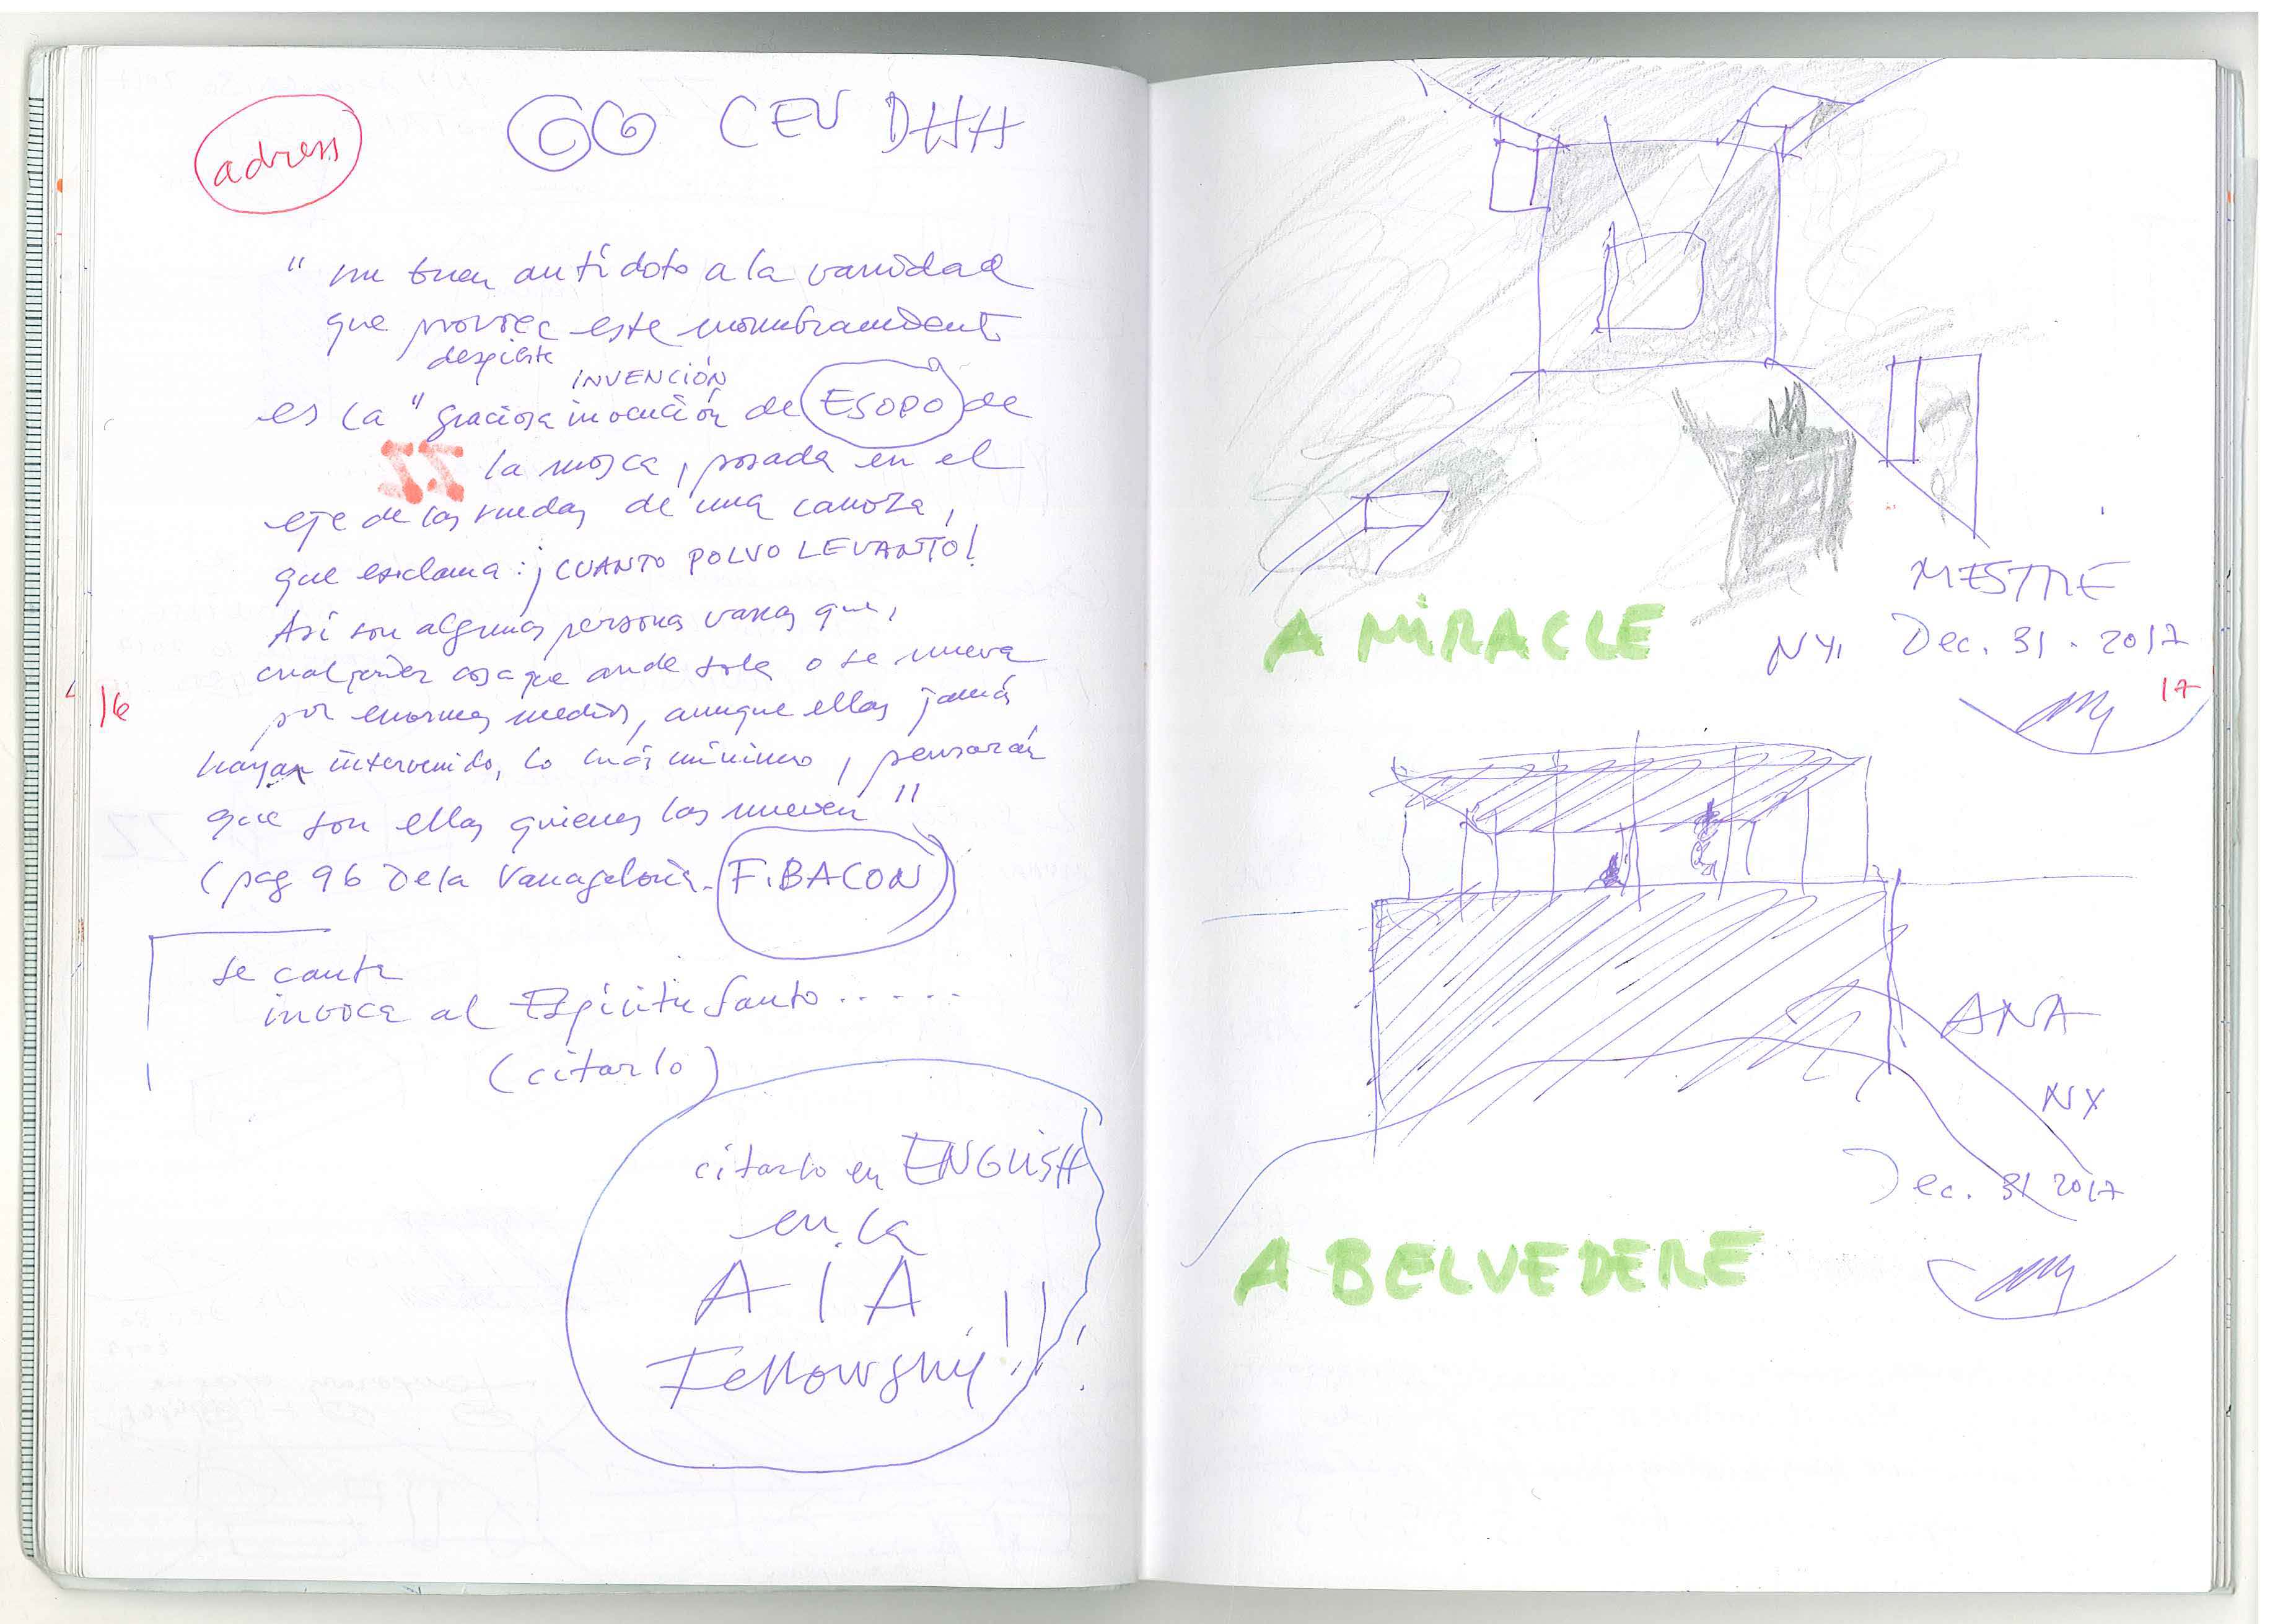 adress
CEU DHH
"un buen antídoto a la vanidad
que provoca este nombramient
despierte
INVENCIÓN
es la "graciosa invocación de ESOPO de
la mosca, posada en el
eje de las ruedas de una carroza,
que exclama: ¡CUANTO POLVO LEVANTO!
Así son algunas persona vanas que,
cualquier cosa que ande sola o se mueva
por enormes medios, aunque ellas jamás
hayan intervenido, lo más mínimo, pensarán
que son ellas quienes las mueven"
(pag 96 De la Vanagloria. F. BACON
se cante
invoca al Espíritu Santo.....
(citarlo)
citarlo en ENGLISH
en la
AIA
Fellowship!!
16
MESTRE
A MIRACLE
NY, Dec. 31. 2017
17
ANA
NY
Dec. 31 2017
A BELVEDERE